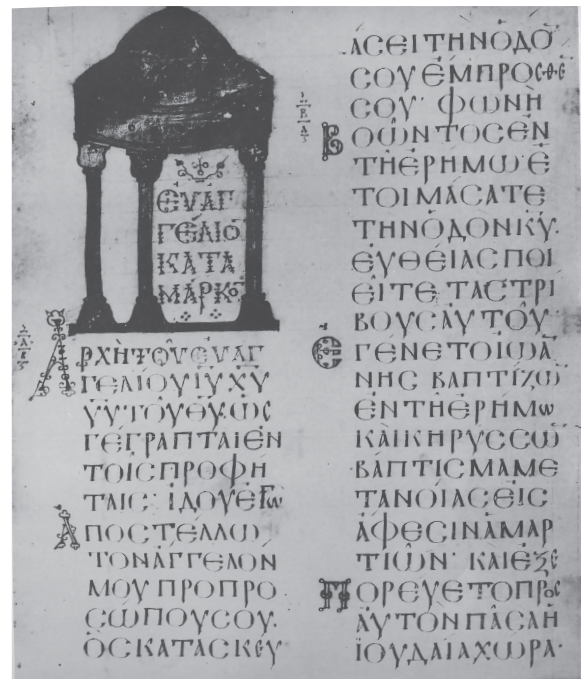 ΕΥΑΓ
ΓΕΛΙΟ
ΚΑΤΑ
ΜΑΡΚΟ
ΑΡΧΗ ΤΟΥ ΕΥΑΓ
ΓΕΛΙΟΥ ΙΥ ΧΥ
ΥΥ ΤΟΥ ΘΥ ΩϹ
ΓΕΓΡΑΠΤΑΙ ΕΝ
ΤΟΙϹ ΠΡΟΦΗ
ΤΑΙϹ· ΙΔΟΥ ΕΓΩ
ΑΠΟϹΤΕΛΛΩ
ΤΟΝ ΑΓΓΕΛΟΝ
ΜΟΥ ΠΡΟ ΠΡΟ
ϹΩΠΟΥ ϹΟΥ·
ὉϹ ΚΑΤΑϹΚΕΥ
ΑϹΕΙ ΤΗΝ ΟΔΟ
ϹΟΥ ΕΜΠΡΟϹΘΕ
ϹΟΥ· ΦΩΝΗ
ΒΟΩΝΤΟϹ ΕΝ
ΤΗ ΕΡΗΜΩ· Ε
ΤΟΙΜΑϹΑΤΕ
ΤΗΝ ΟΔΟΝ ΚΥ·
ΕΥΘΕΙΑϹ ΠΟΙ
ΕΙΤΕ ΤΑϹ ΤΡΙ
ΒΟΥϹ ΑΥΤΟΥ·
ΕΓΕΝΕΤΟ ΙΩΑ
ΝΗϹ ΒΑΠΤΙΖΩ
ΕΝ ΤΗ ΕΡΗΜΩ
ΚΑΙ ΚΗΡΥϹϹΩ
ΒΑΠΤΙϹΜΑ ΜΕ
ΤΑΝΟΙΑϹ ΕΙϹ
ΑΦΕϹΙΝ ΑΜΑΡ
ΤΙΩΝ· ΚΑΙ ΕΞΕ
ΠΟΡΕΥΕΤΟ ΠΡΟϹ
ΑΥΤΟΝ ΠΑϹΑ Η
ΙΟΥΔΑΙΑ ΧΩΡΑ·